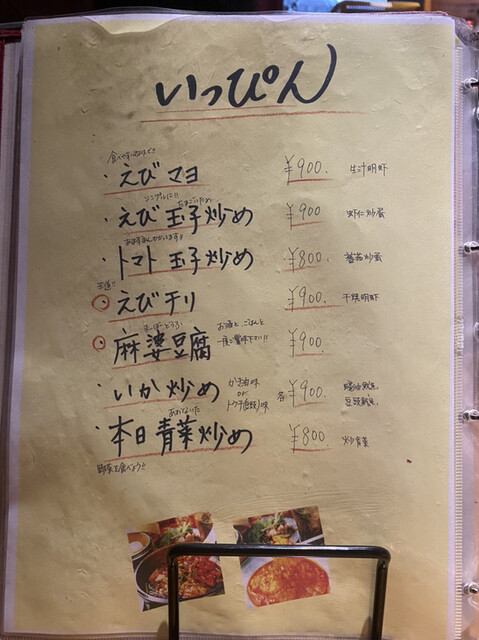 いっぴん
・えびマヨ ¥900. 生汁明虾
シンプルに!!
・えび玉子炒め ¥900 虾仁炒蛋
・トマト玉子炒め ¥800. 蕃茄炒蛋
王道!!
えびチリ ¥900. 干焼明虾
まーぼーどうふ
麻婆豆腐 お酒と、ごはんと ¥900.
・いか炒め かき油味 or トウチ(豆豉)味 各¥900.
あおなないため
・本日青菜炒め ¥800. 炒青菜
野菜を食べよう!!